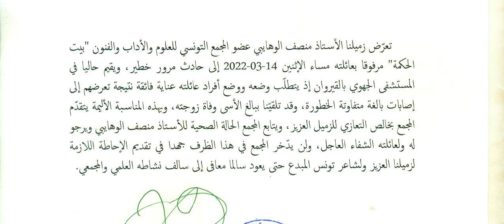 تعرّض زميلنا الأستاذ منصف الوهايبي عضو المجمع التونسي للعلوم والآداب والفنون "بيت
الحكمة" مرفوقا بعائلته مساء الإثنين 14-03-2022 إلى حادث مرور خطير، ويقيم حاليا في
المستشفى الجهوي بالقيروان إذ يتطلّب وضعه ووضع أفراد عائلته عناية فائقة نتيجة تعرضهم إلى
إصابات بالغة متفاوتة الخطورة، وقد تلقيّنا ببالغ الأسى وفاة زوجته، وبهذه المناسبة الأليمة يتقدّم
المجمع بخالص التعازي للزميل العزيز، ويتابع المجمع الحالة الصحية للأستاذ منصف الوهايبي ويرجو
له ولعائلته الشفاء العاجل، ولن يدّخر المجمع في هذا الظرف جهدا في تقديم الإحاطة اللازمة
لزميلنا العزيز ولشاعر تونس المبدع حتى يعود سالما معافى إلى سالف نشاطه العلمي والمجمعي.